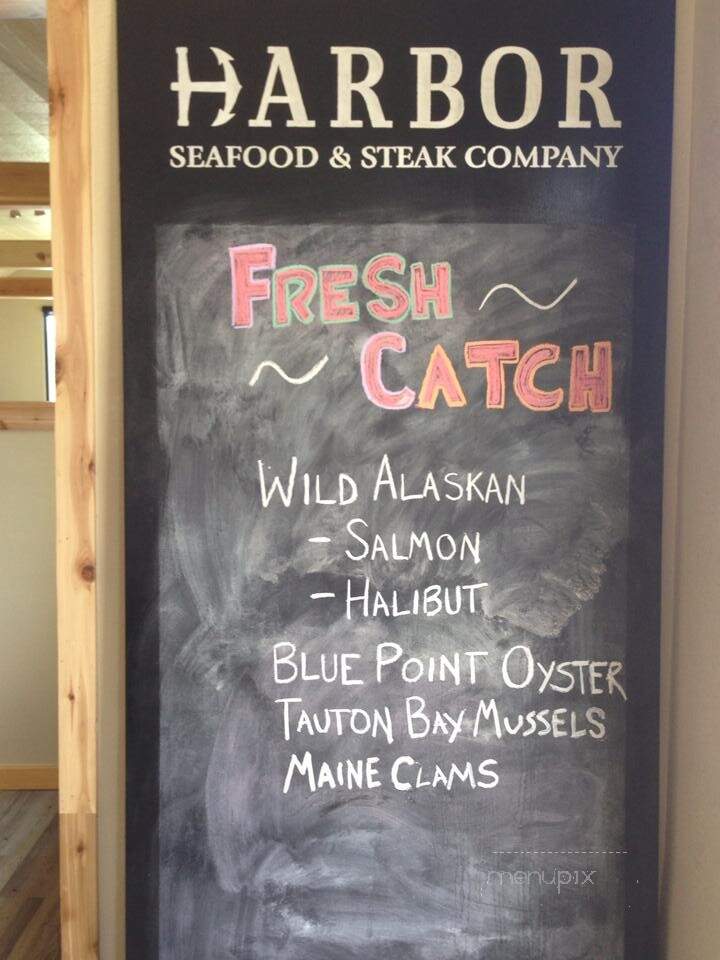 HARBOR
SEAFOOD & STEAK COMPANY
FRESH ~
~ CATCH
WILD ALASKAN
- SALMON
- HALIBUT
BLUE POINT OYSTER
TAUTON BAY MUSSELS
MAINE CLAMS
menupix